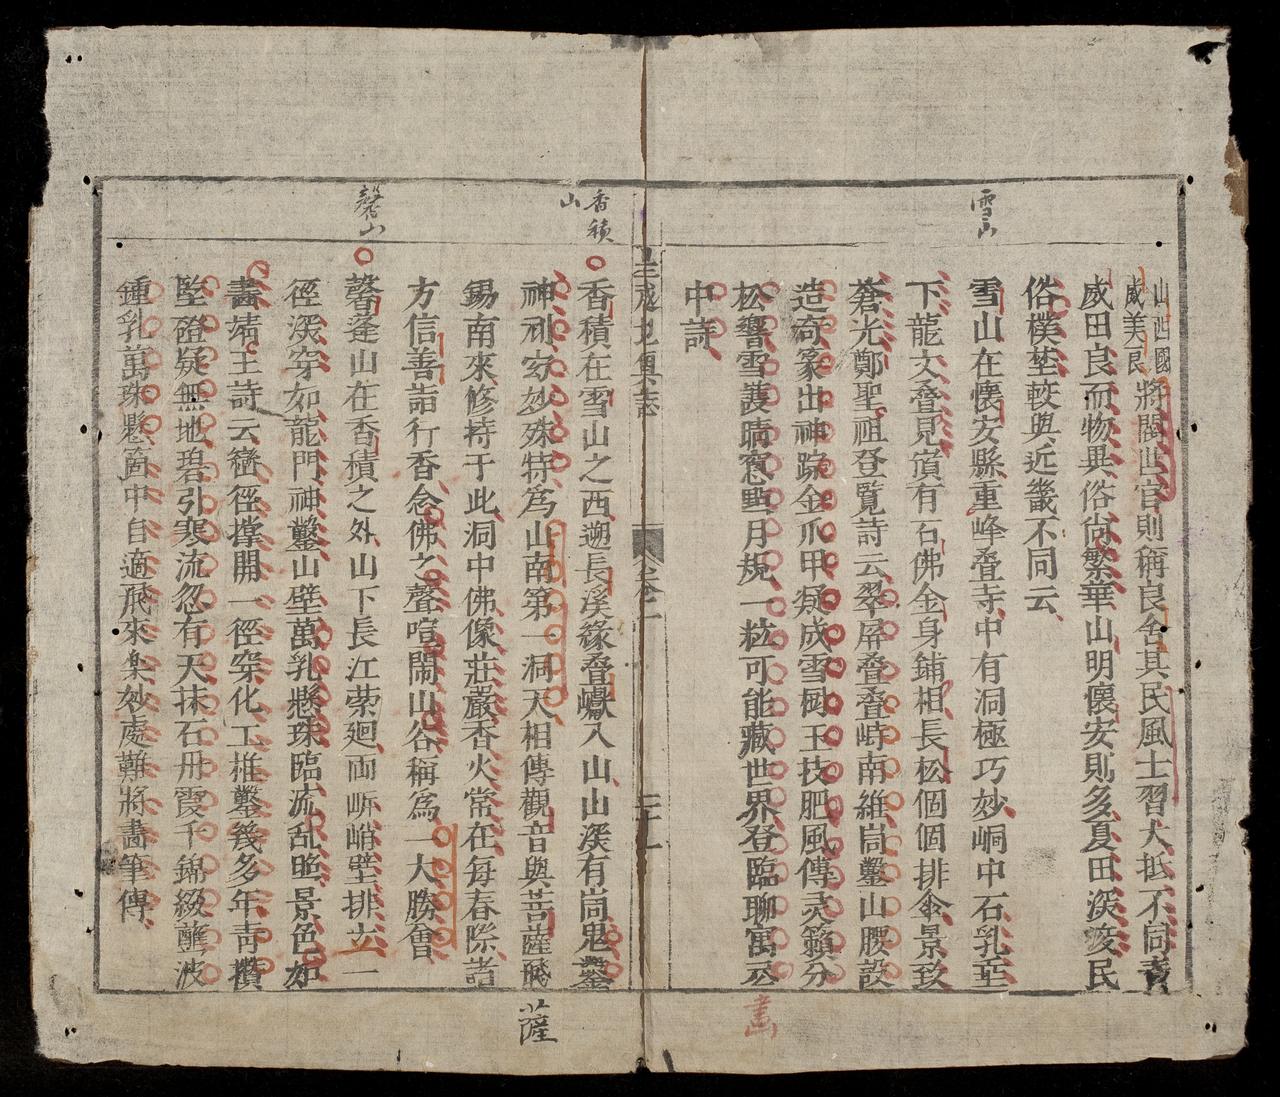 雪山
山西國
威美良
將閣出官則稱良舍其民風士習大抵不同耆
威田良而物異俗尚繁華山明懷安則多夏田深葰民
俗樸埜較與近畿不同云
雪山在懷安縣重峰叠寺中有洞極巧妙峒中石乳垂
下龍文叠見濱有石佛金身鋪相長松個個排傘景致
蒼光鄭聖祖登覽詩云翠屏叠叠峙南維峝鑿山腰設
造奇篆出神踪金爪甲凝成雪樹玉技肥風傳灵籟分
松響雪護晴窓點月規一粒可能藏世界登臨聊寓
中詩
畫
皇越地輿誌
卷之二
二十一
香積
山
香積在雪山之西遡長溪緣叠巘入山山深有峝鬼鑿
神刓穷妙殊特為山南第一洞天相傳觀音與菩薩飛
錫南來修持于此洞中佛像莊嚴香火常在每春際諸
方信善詣行香念佛之聲喧閙山谷稱為一大勝會
薩
馨山
馨蓬山在香積之外山下長江萦廻両岍峭壁排立一
徑深穿如龍門神鑿山壁萬乳懸珠臨流乱䀿景色如
畫靖王詩云巒徑撑開一徑穿化工推鑿幾多年青攢
墜磴疑無地碧引寒流忽有天抹石丹霞千錦綴蘸波
鍾乳萬珠懸箇中自適飛來奥妙處難將畵筆傳